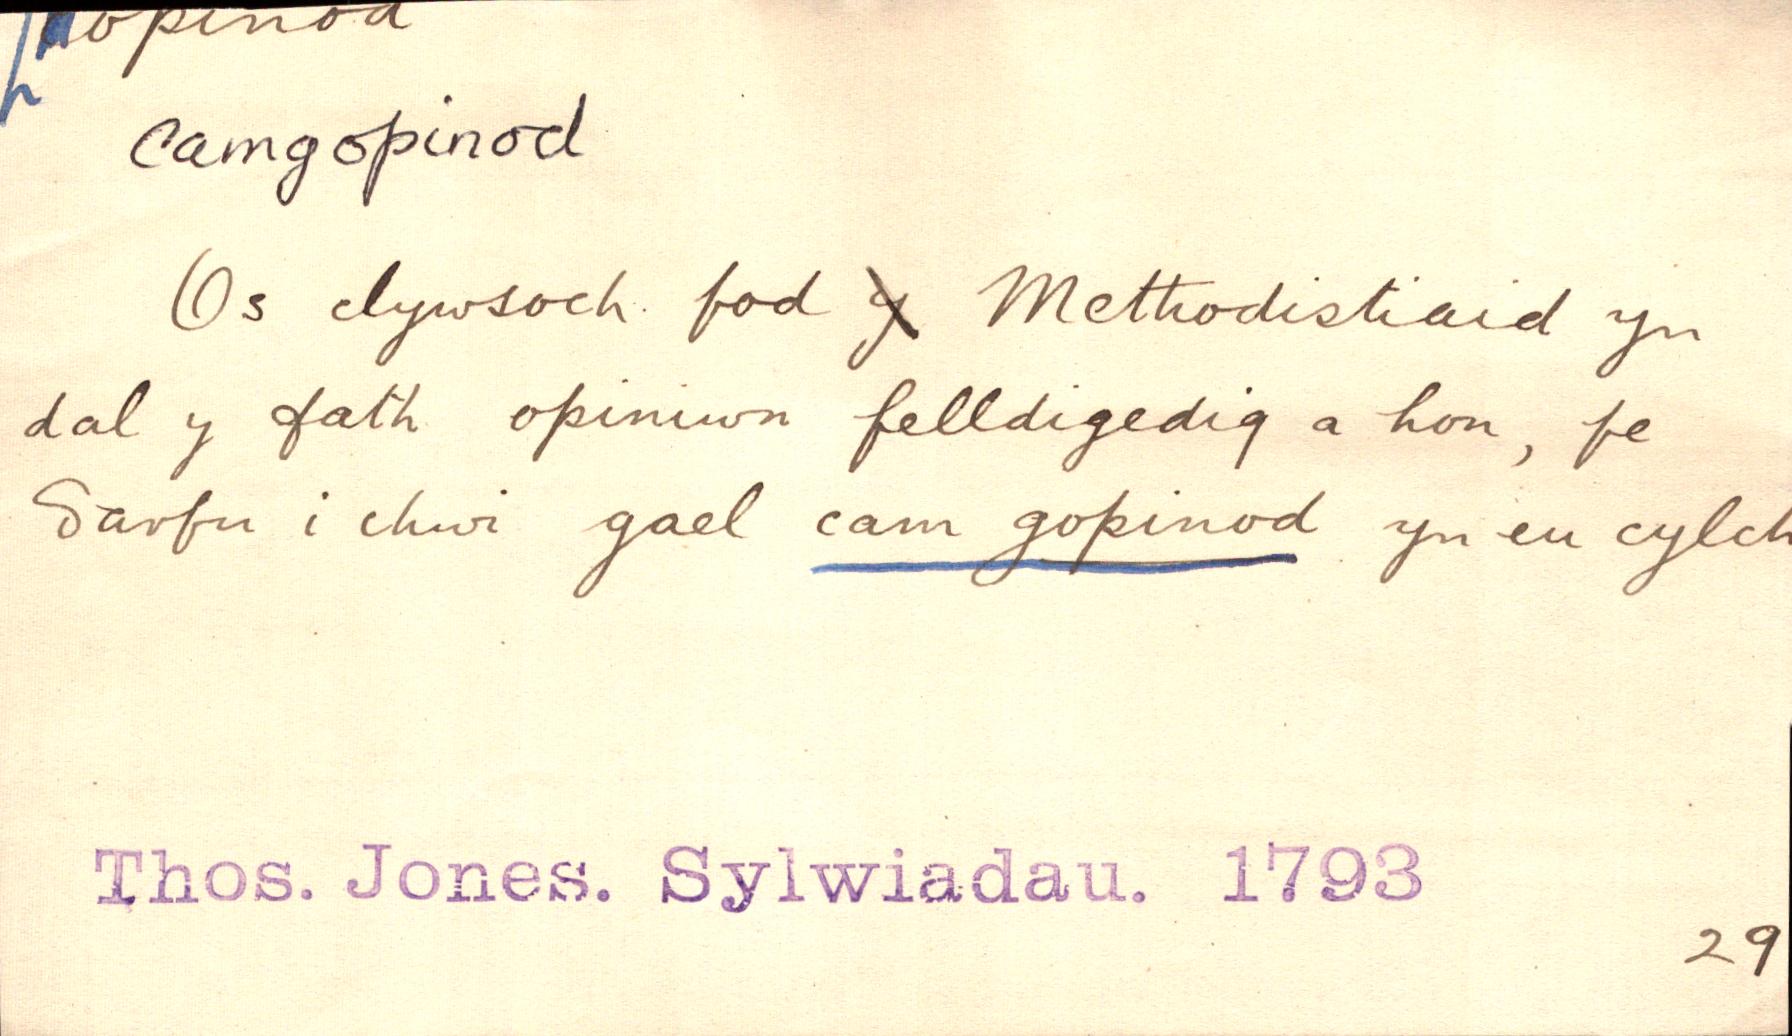 gopinod
camgopinod
Os clywsoch fod y Methodistiaid yn
dal y fath opiniwn felldigedig a hon, fe
Darfu i chwi gael cam gopinod yn eu cylch
Thos. Jones. Sylwiadau. 1793
29